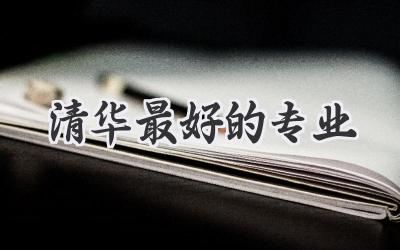 清华最好的专业